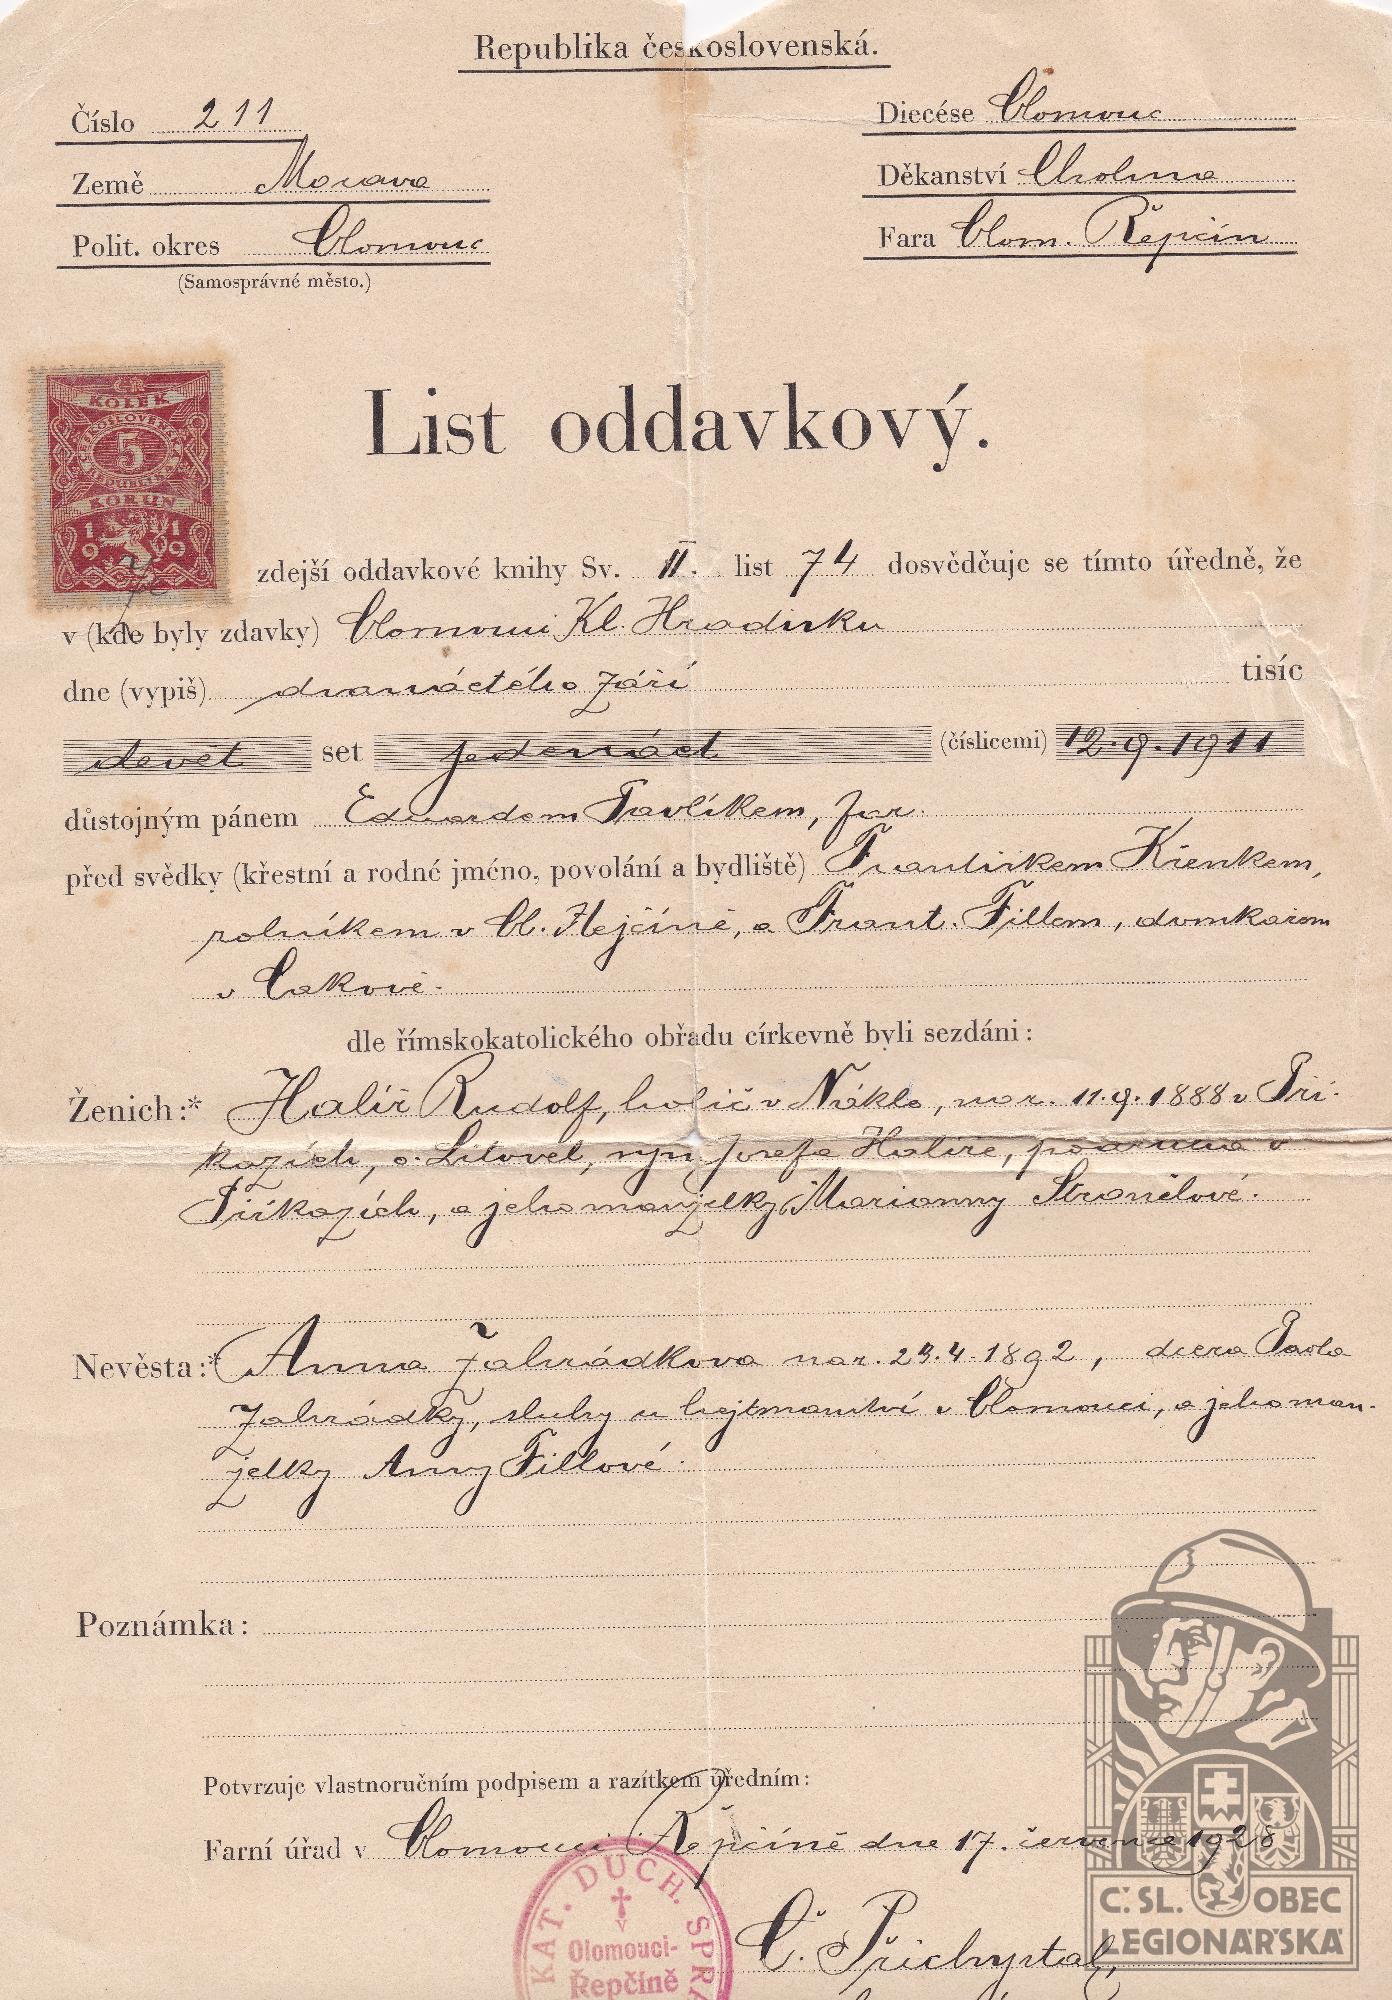 Republika československá.
Číslo 211
Země Morava
Polit. okres Olomouc
(Samosprávné město.)
Diecése Olomouc
Děkanství Cholina
Fara Olom. Řepčín
ČR
KOLEK
ČESKOSLOVENSKÁ
5
REPUBLIKA
KORUN
1919
List oddavkový.
zdejší oddavkové knihy Sv. II. list 74 dosvědčuje se tímto úředně, že
v (kde byly zdavky) Olomouci Kl. Hradisku
dne (vypiš) dvanáctého září tisíc
devět set jedenáct (číslicemi) 12.9.1911
důstojným pánem Eduardem Pavlíkem, far.
před svědky (křestní a rodné jméno, povolání a bydliště) Františkem Křenkem,
rolníkem v Ol. Hejčíně, a Frant. Fillem, domkařem
v Cakově.
dle římskokatolického obřadu církevně byli sezdáni:
Ženich:* Halíř Rudolf, holič v Nákle, nar. 11.9.1888 v Pří-
kazích, o. Litovel, syn Josefa Halíře, v
Příkazích, a jeho manželky Marianny Stranělové.
Nevěsta:* Anna Zahrádkova nar. 23.4.1892, dcera Pavla
Zahrádky, sluhy u hejtmanství v Olomouci, a jeho man-
želky Anny Fillové.
Poznámka:
Potvrzuje vlastnoručním podpisem a razítkem úředním:
Farní úřad v Olomouci Řepčíně dne 17. července 1928
KAT. DUCH. SPRÁ
v
Olomouci-
Řepčíně
Č. Přichystal,
Č.SL. OBEC
LEGIONÁŘSKÁ